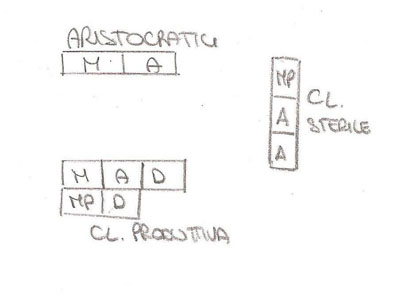 ARISTOCRATICI
M A
MP
A
A
CL.
STERILE
M A D
MP D
CL. PRODUTTIVA